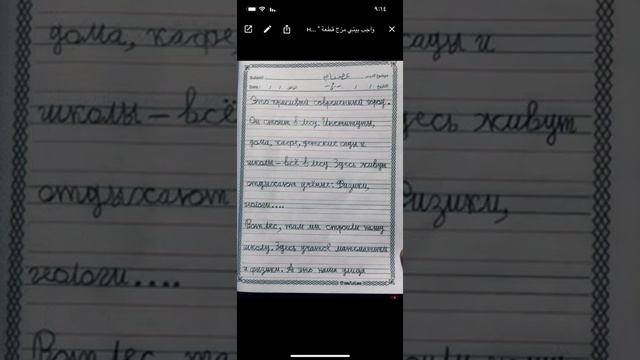 ٩:١٤
واجب بيتي مزج قطعة " ... H
Subject
Date : / /
/ /
Это красивый современный город.
Он стоит в лесу. Институты,
дома, кафе, детские сады и
школы – всё в лесу. Здесь живут
отдыхают учёные: Физики,
геологи....
Вот лес, там мы строили нашу
школу. Здесь учатся математики
и физики. А это наша улица
дома, кафе, сады и
школы – всё здесь живут
отдыхают Физики,
геологи....